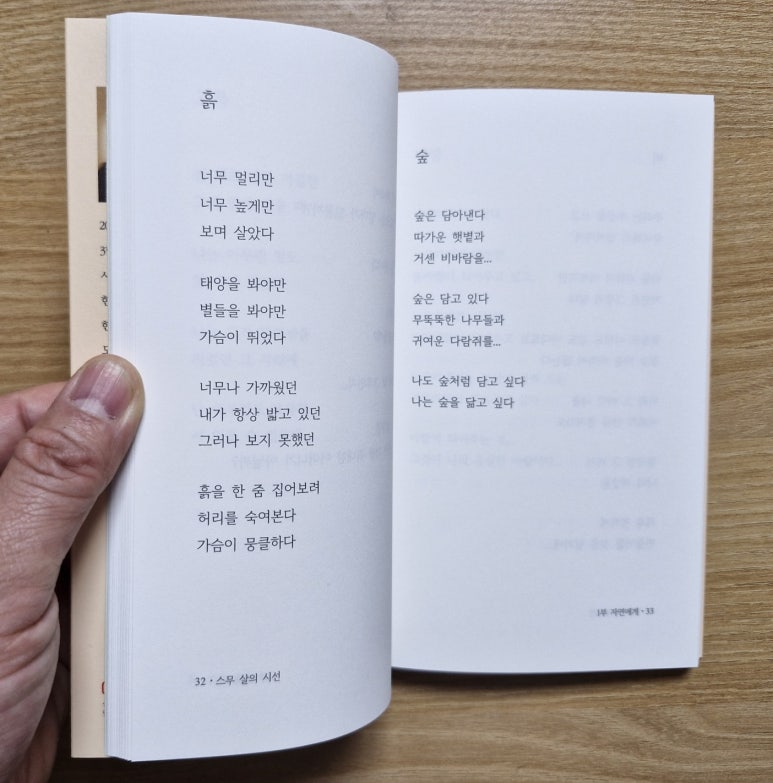 흙
너무 멀리만
너무 높게만
보며 살았다
태양을 봐야만
별들을 봐야만
가슴이 뛰었다
너무나 가까웠던
내가 항상 밟고 있던
그러나 보지 못했던
흙을 한 줌 집어보려
허리를 숙여본다
가슴이 뭉클하다
32 • 스무 살의 시선
숲
숲은 담아낸다
따가운 햇볕과
거센 비바람을...
숲은 담고 있다
무뚝뚝한 나무들과
귀여운 다람쥐를...
나도 숲처럼 담고 싶다
나는 숲을 닮고 싶다
1부 자연에게 • 33